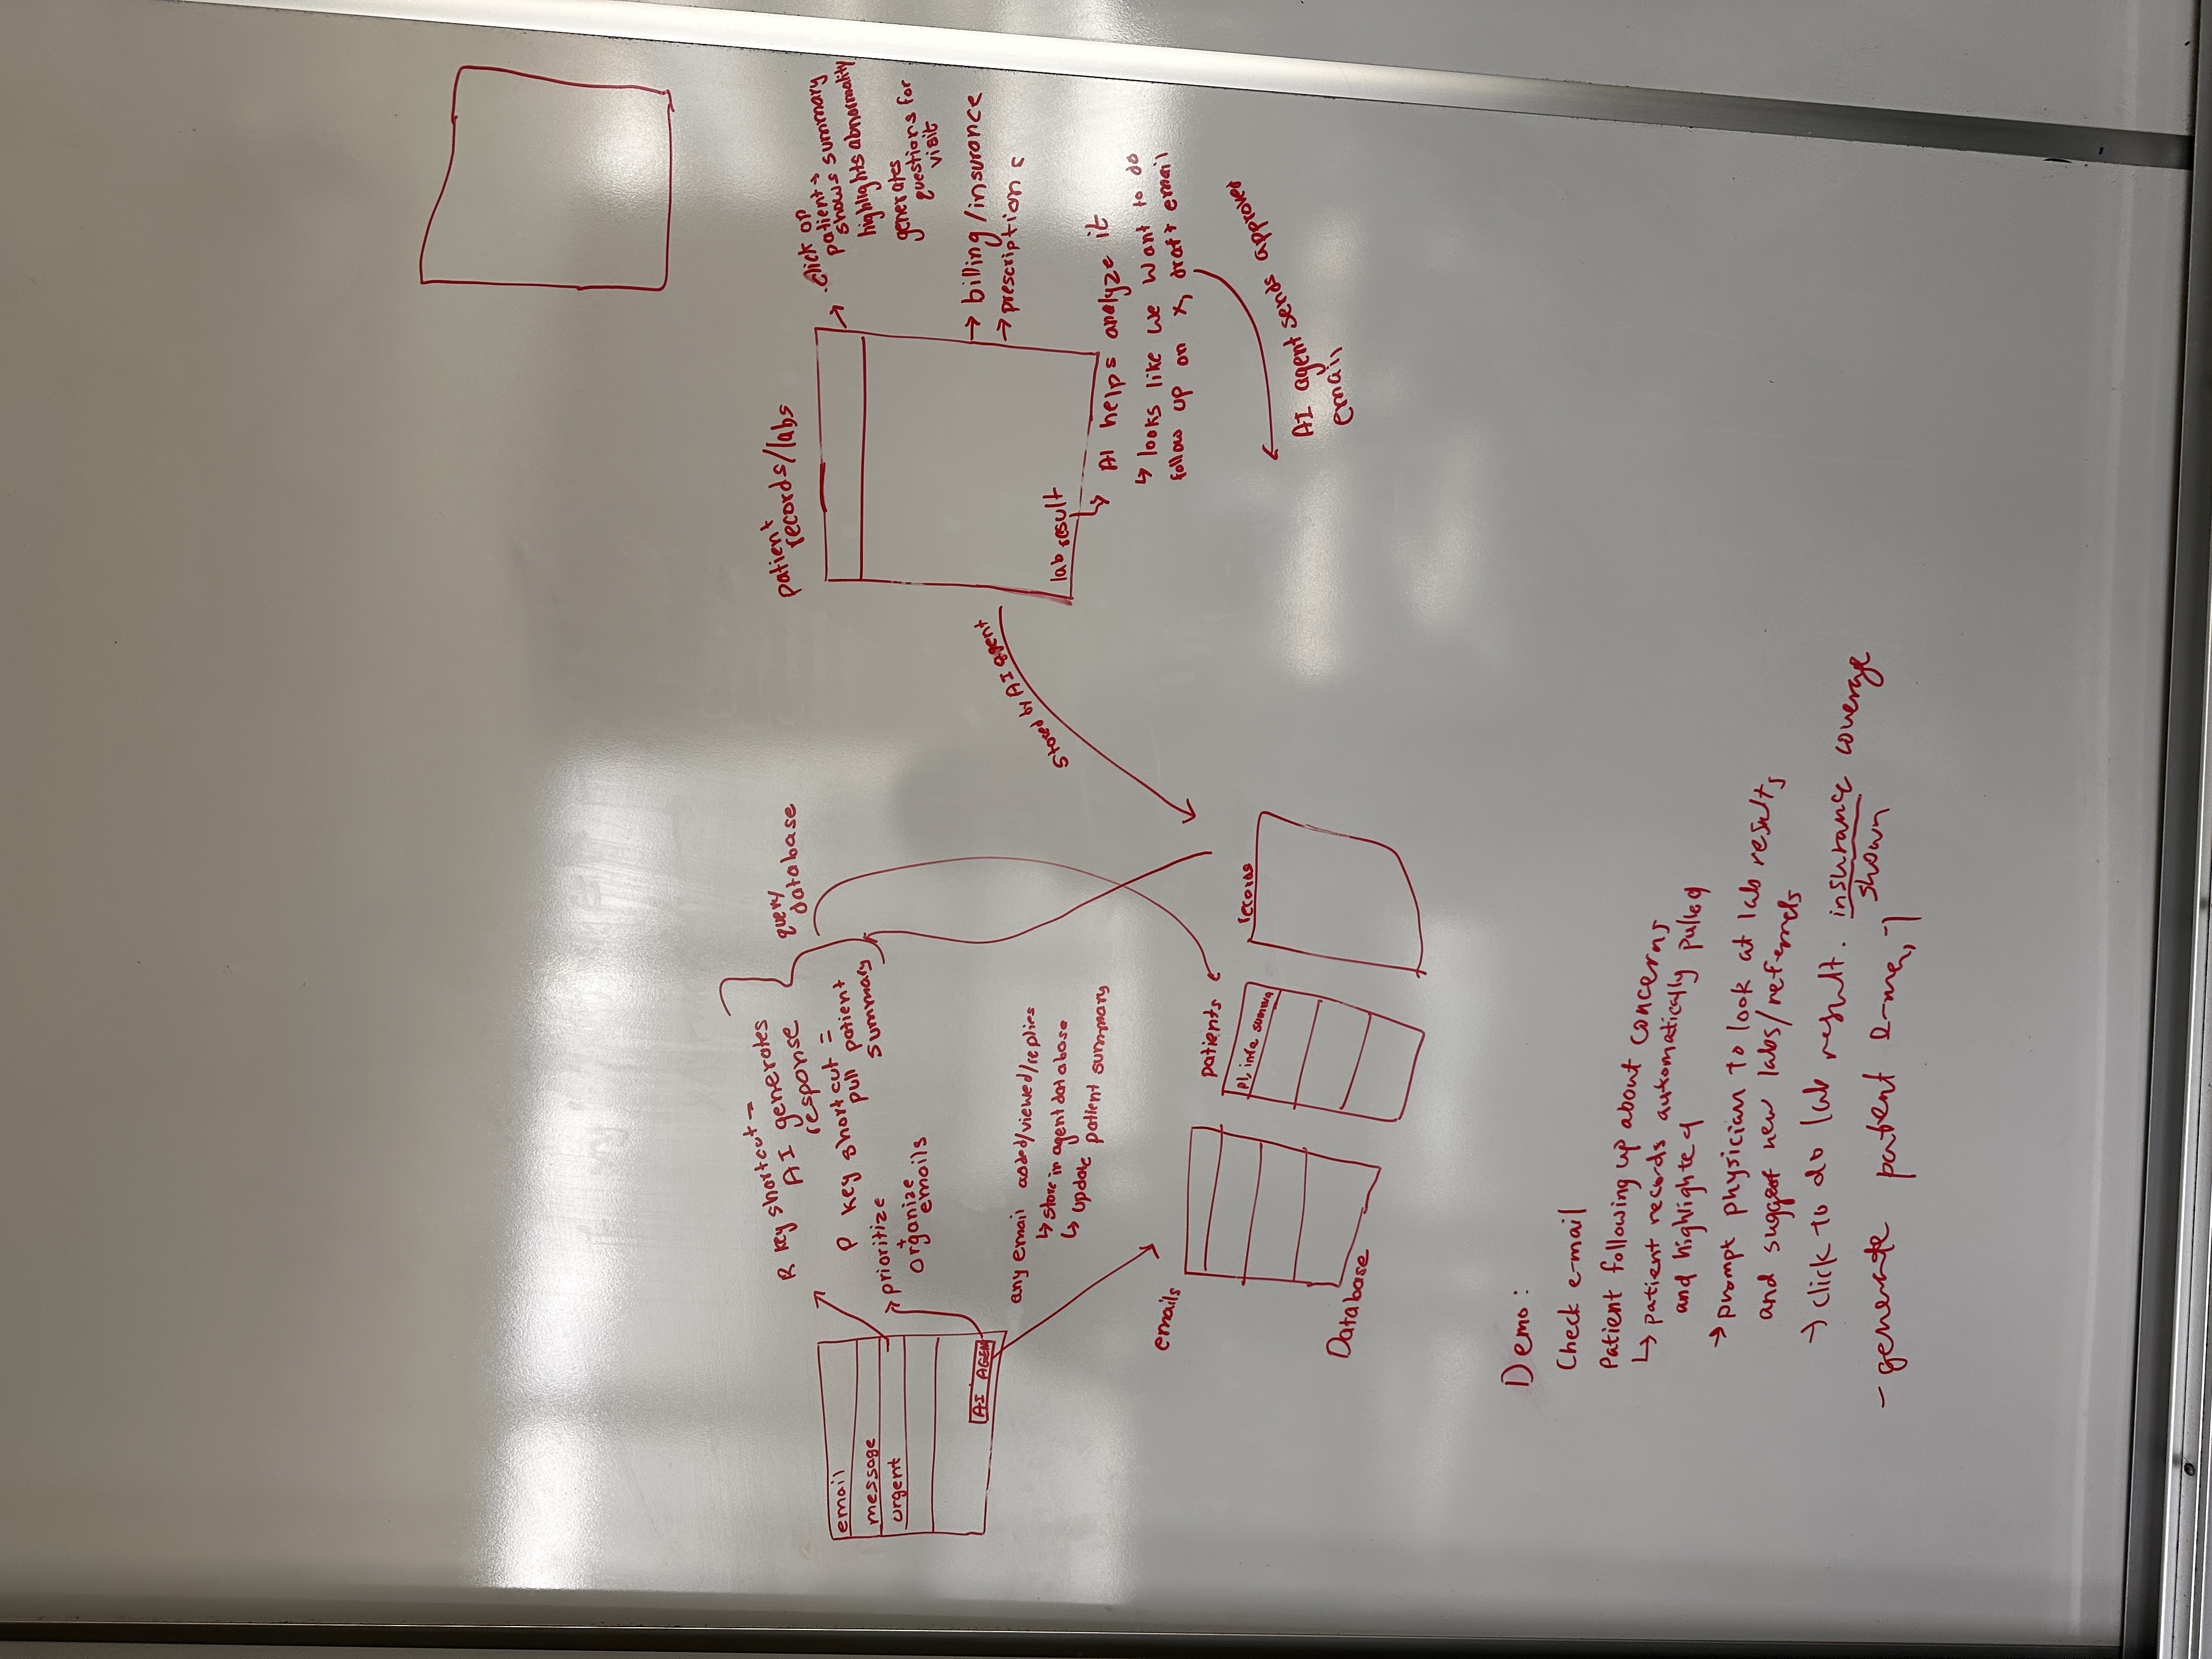 email
message
urgent
AI AGENT
R key shortcut -
AI generates
response
P key shortcut =
pull patient
summary
prioritize
+
organize
emails
query
database
any email added/viewed/replies
↳ store in agent database
↳ update patient summary
emails
patients
records
Database
stored by AI agent
patient
records/labs
lab result
→ click on
patient →
shows summary
highlights abnormality
generates
questions for
visit
→ billing/insurance
→ prescriptions
↳ AI helps analyze it
↳ looks like we want to do
follow up on x, draft email
AI agent sends approved
email
Demo:
Check email
Patient following up about concerns
↳ patient records automatically pulled
and highlighted
→ prompt physician to look at lab results
and suggest new labs/referrals
→ click to do lab result. insurance coverage
shown
- generate patient e-mail